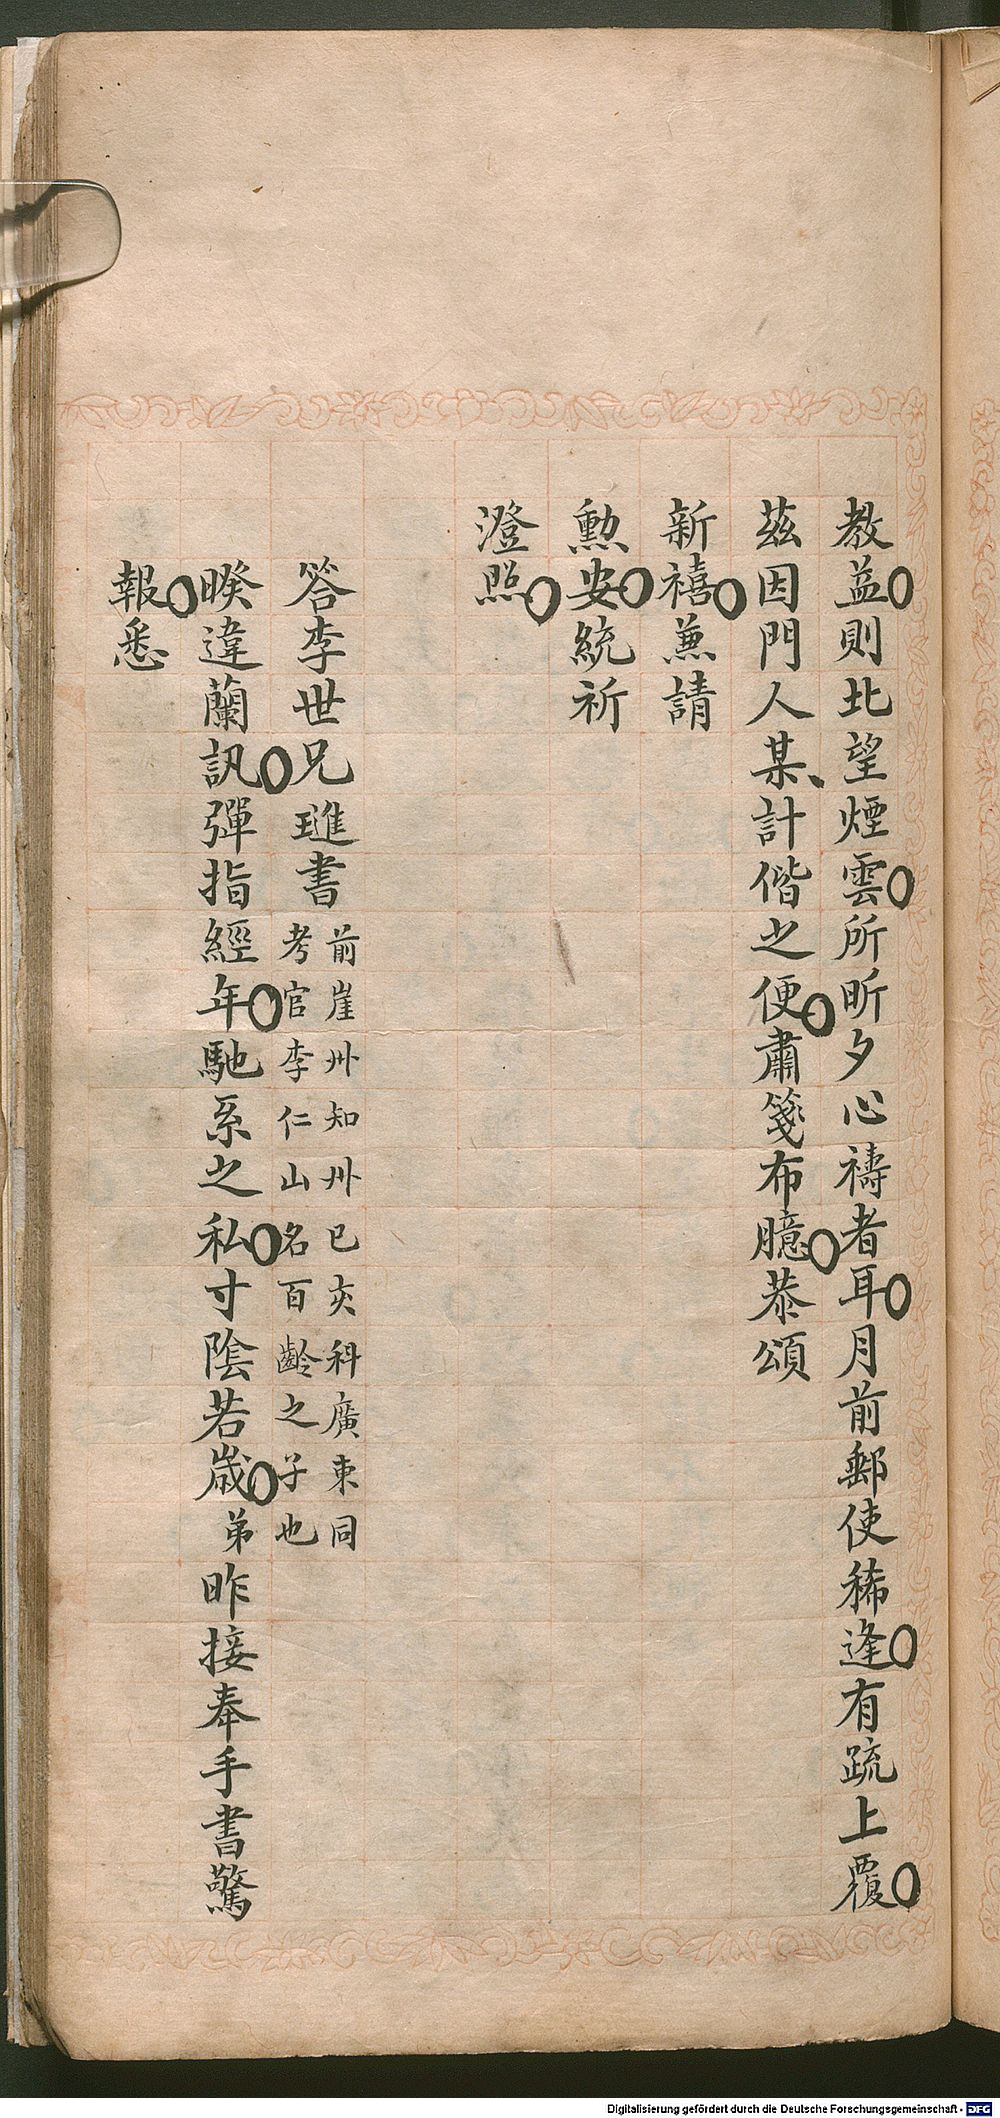 教益則北望煙雲所昕夕心禱者耳月前郵使稀逢有疏上覆
茲因門人某計偕之便肅箋布臆恭頌
新禧兼請
勳安統祈
澄照
答李世兄璡書
前崖州知州已亥科廣東同
考官李仁山名百齡之子也
睽違蘭訊彈指經年馳系之私寸陰若歲弟昨接奉手書驚
報悉
Digitalisierung gefördert durch die Deutsche Forschungsgemeinschaft - DFG